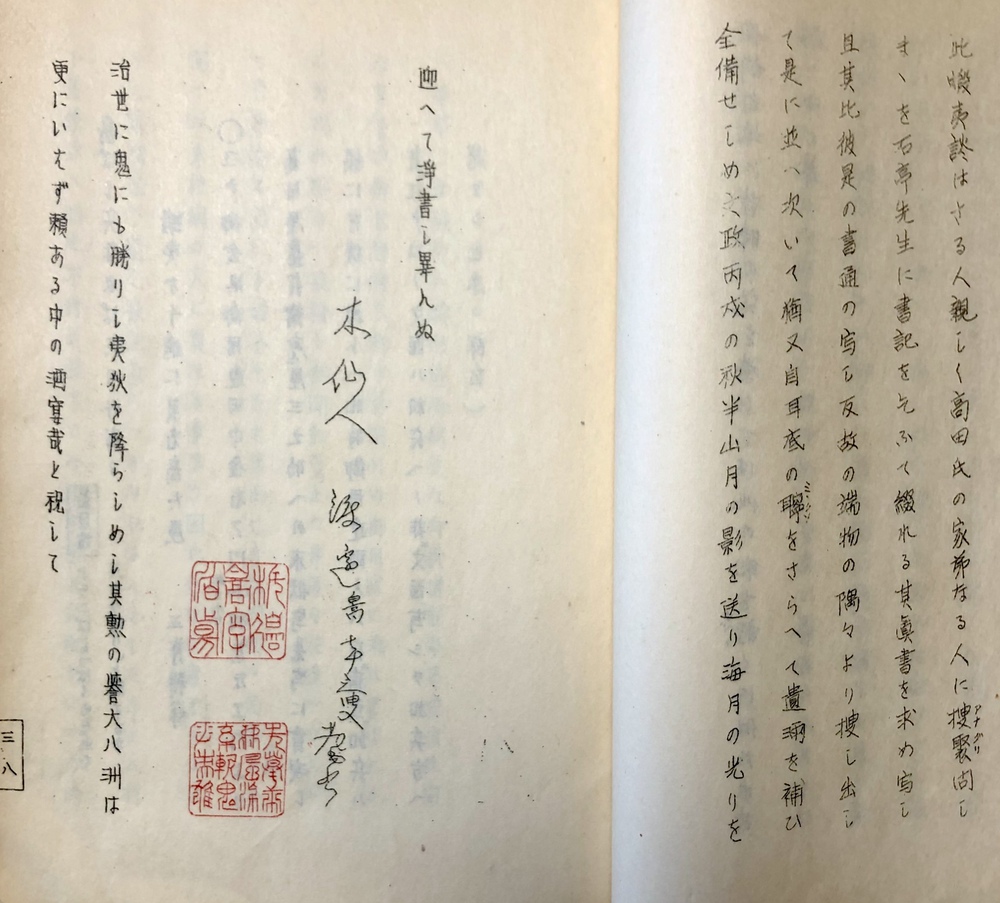 此暇夷談はさる人親しく高田氏の家弟なる人に捜聚問し
きゝを石亭先生に書記を乞ふて綴れる其眞書を求め写し
且其比彼是の書通の写し反故の端物の隅々より捜し出し
て是に並へ次いて猶又自耳底の聊をさらへて遺漏を補ひ
全備せしめ文政丙戌の秋半山月の影を送り海月の光りを
迎へて浄書し畢んぬ
木仙人
治世に鬼にも勝りし夷狄を降らしめし其勲の誉大八洲は
更にいはず頼ある中の酒宴哉と祝して
三八